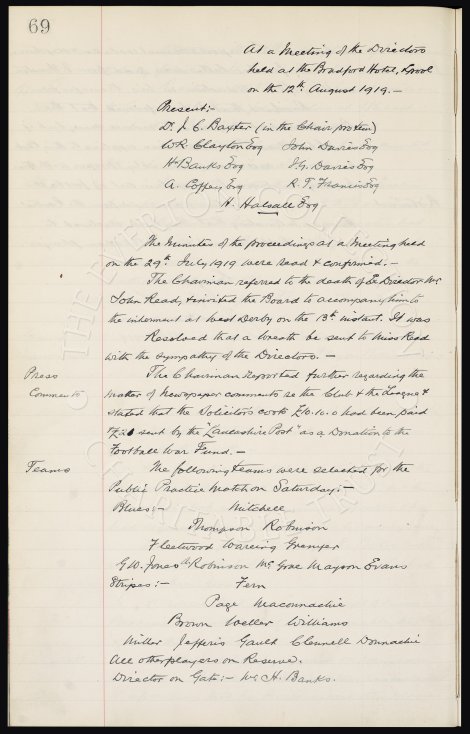 69
At a Meeting of the Directors
held at the Bradford Hotel, L'pool
on the 12th August 1919.—
Present:-
Dr J. C. Baxter (in the Chair protem)
W.R. Clayton Esq John Davies Esq
H. Banks Esq J.G. Davies Esq
A. Coffey Esq R. T. Francis Esq
H. Halsall Esq
The Minutes of the proceedings at a Meeting held
on the 29th July 1919 were read & confirmed.—
The Chairman referred to the death of Ex Director Mr
John Read, & invited the Board to accompany him to
the interment at West Derby on the 13th instant. It was
Resolved that a wreath be sent to Miss Read
with the sympathy of the Directors.—
Press
Comments
The Chairman reported further regarding the
matter of Newspaper comments re the Club & the League &
stated that the Solicitors costs £10.10.0 had been paid
sent by the "Lancashire Post" as a Donation to the
Football War Fund.—
Teams
The following teams were selected for the
Public Practice Match on Saturday:-
Blues:- Mitchell
Thompson Robinson
Fleetwood Wareing Grenyer
G.W. Jones A Robinson Mc Grae Mayson Evans
Stripes:- Fern
Page Maconnachie
Brown Weller Williams
Miller Jefferis Gault Clennell Donnachie
All other players on Reserve.
Director on Gate:- Mr H. Banks.
THE EVERTON COLLECTION
CHARITABLE TRUST